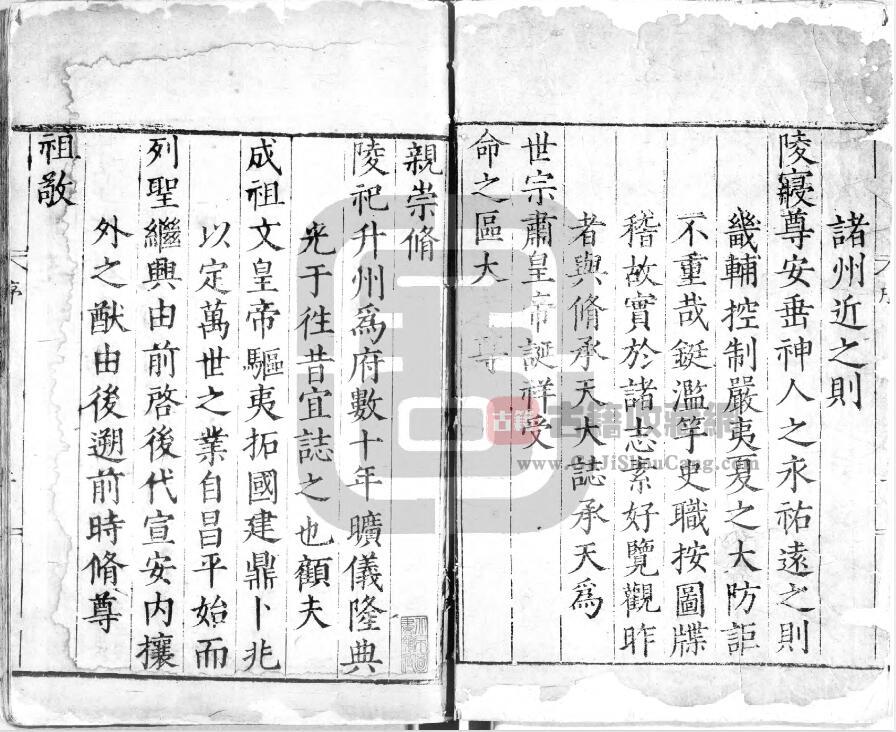 諸州近之則
陵寢尊安垂神人之永祐遠之則
畿輔控制嚴夷夏之大防詎
不重哉鋌濫竽史職按圖牒
稽故實於諸志素好覽觀昨
者與脩承天大誌承天爲
世宗肅皇帝誕祥受
命之區大 尊
親崇脩
陵祀升州爲府數十年曠儀隆典
光于徃昔宜誌之也顧夫
成祖文皇帝驅夷拓國建鼎卜兆
以定萬世之業自昌平始而
列聖繼興由前啓後代宣安內攘
外之猷由後遡前時脩尊
祖敬
序
序
古籍
古籍收藏網
www.GuJiShouCang.com